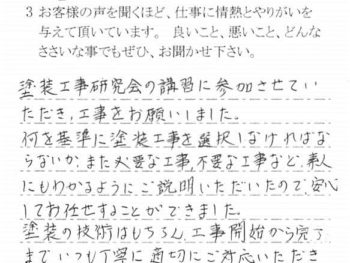 3 お客様の声を聞くほど、仕事に情熱とやりがいを
与えて頂いています。 良いこと、悪いこと、どんな
ささいな事でもぜひ、お聞かせ下さい。
塗装工事研究会の講習に参加させてい
ただき、工事をお願いしました。
何を基準に塗装工事を選択しなければな
らないか、また必要な工事、不要な工事など、素人
にもわかるようにご説明いただいたので、安心
してお任せすることができました。
塗装の技術はもちろん、工事開始から完了
までいつも丁寧に適切にご対応いただき